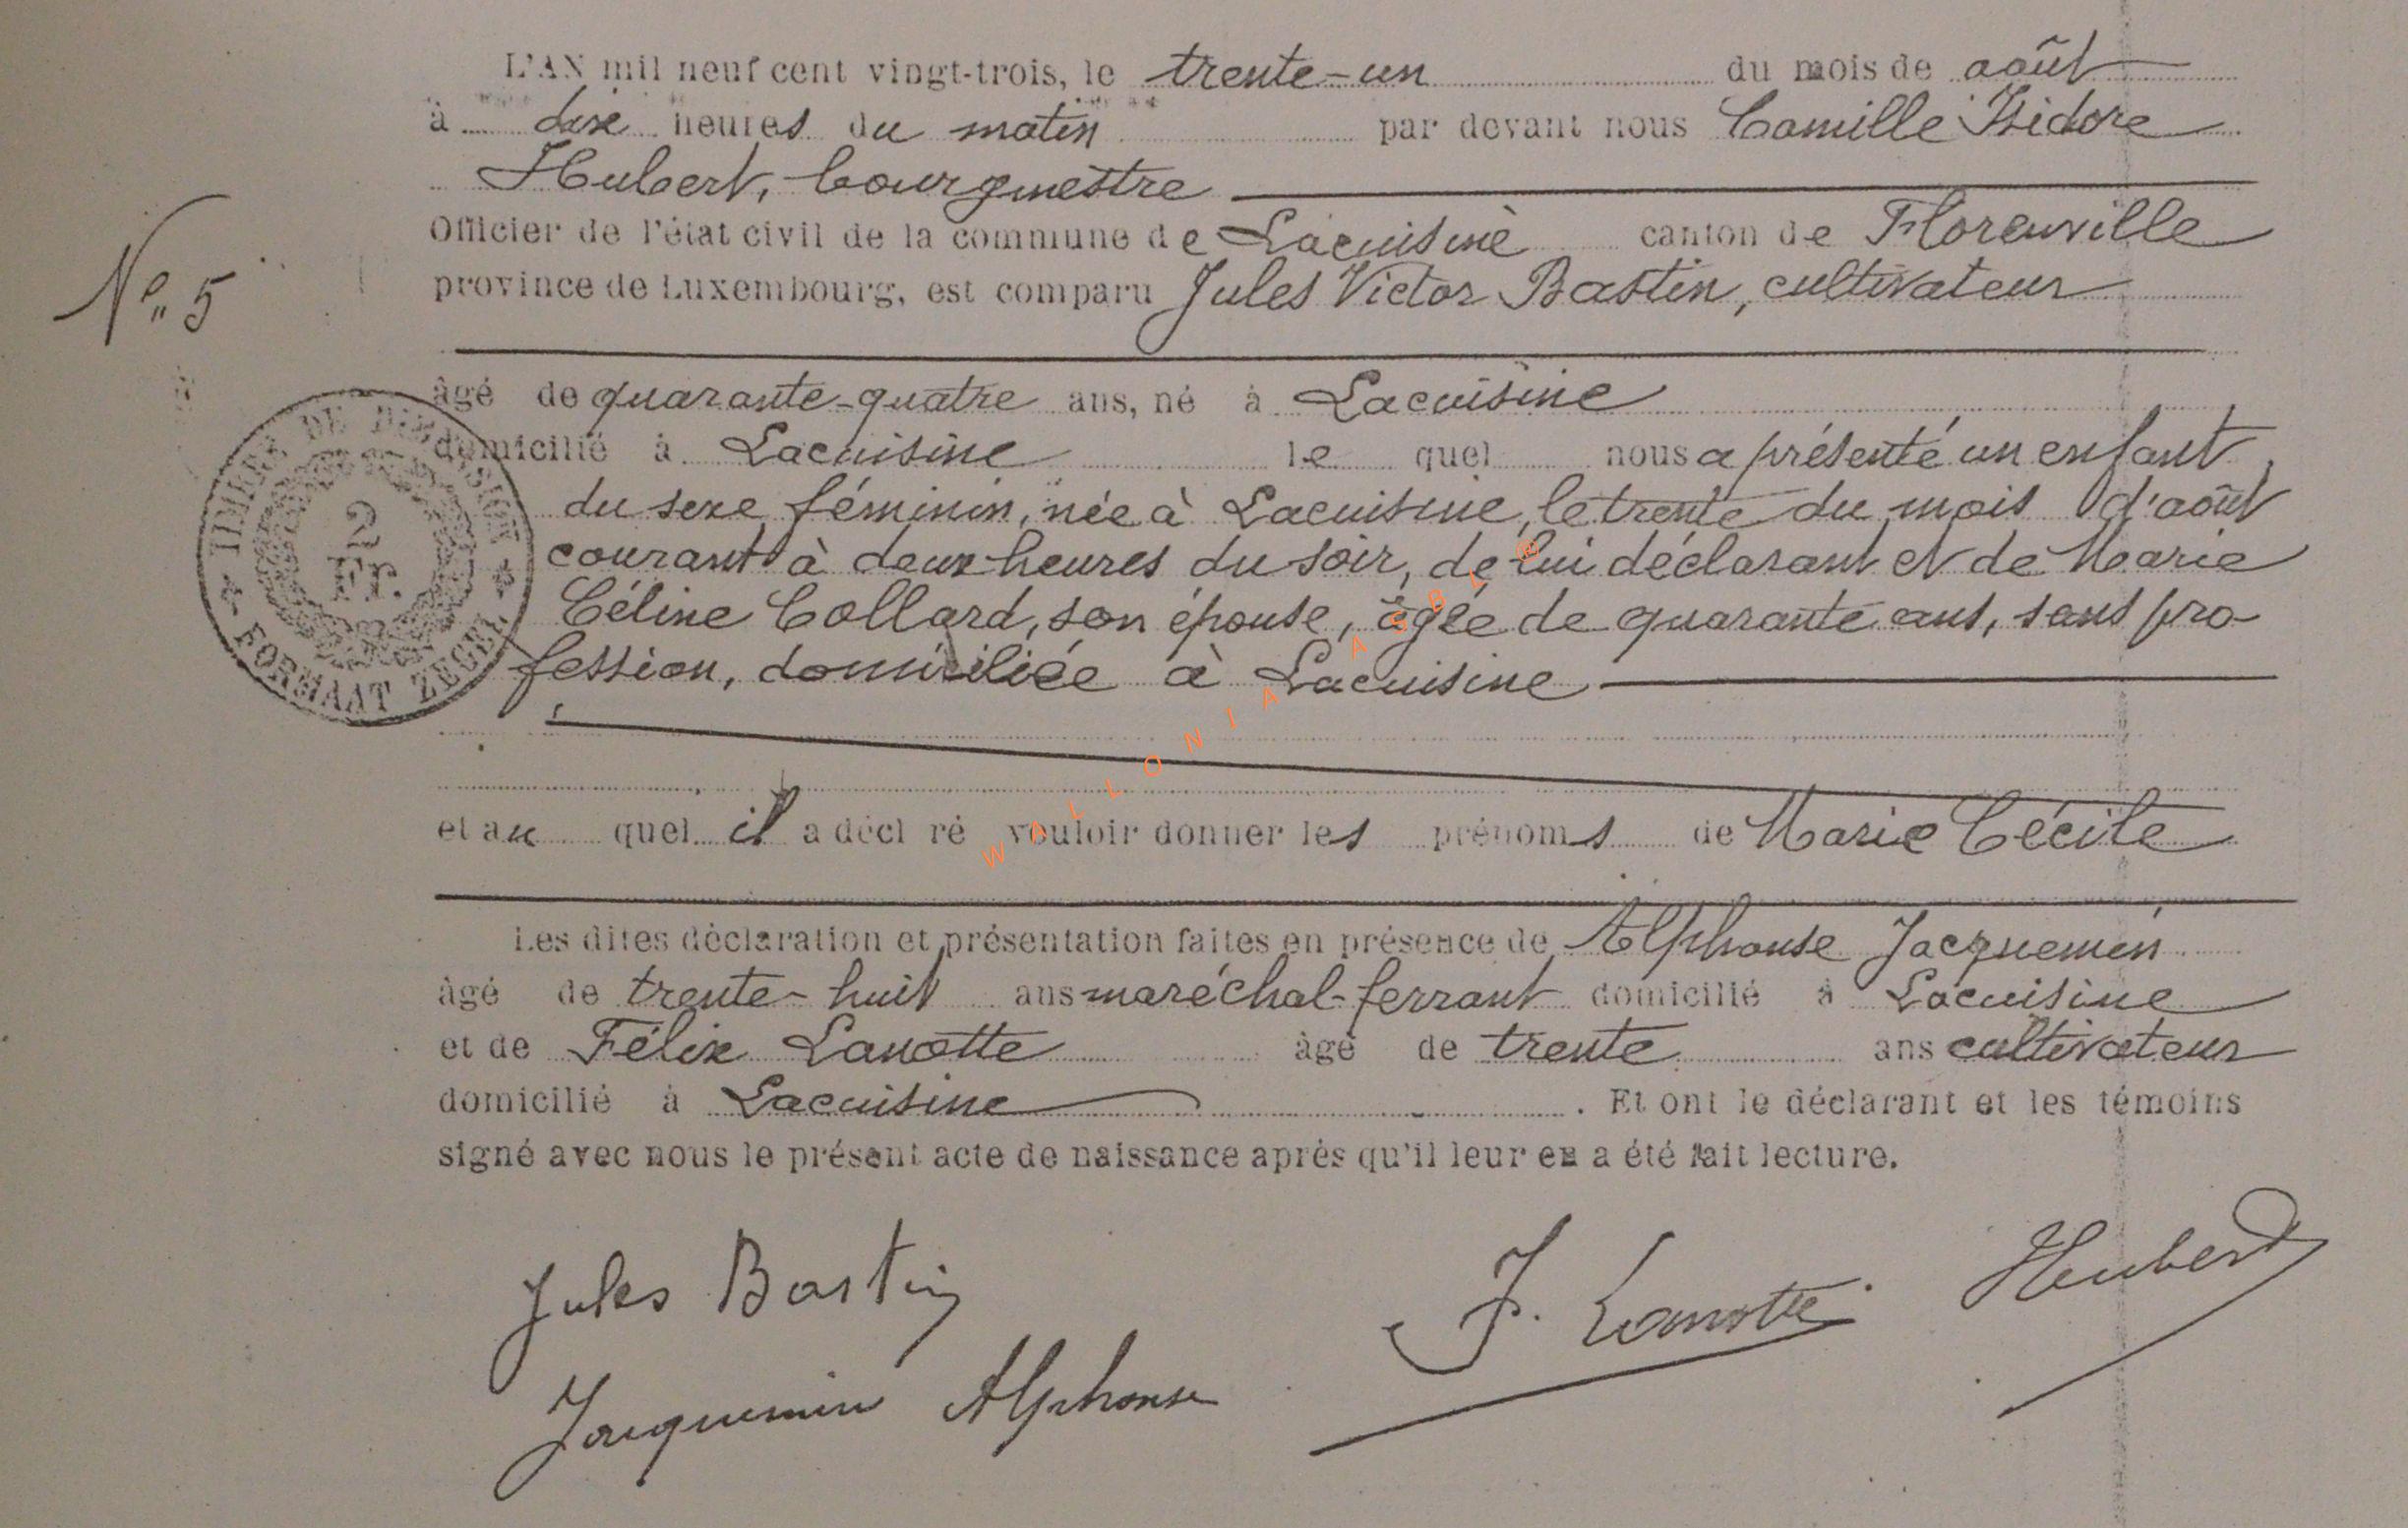 L'AN mil neuf cent vingt-trois, le trente-un du mois de août
à dix heures du matin par devant nous Camille Isidore
Hubert, bourgmestre
Officier de l'état civil de la commune de Lacuisine canton de Florenville
province de Luxembourg, est comparu Jules Victor Bastin, cultivateur
N° 5
âgé de quarante-quatre ans, né à Lacuisine
domicilié à Lacuisine le quel nous a présenté un enfant
du sexe féminin, née à Lacuisine, le trente du mois d'août
courant à deux heures du soir, de lui déclarant et de Marie
Céline Collard, son épouse, âgée de quarante ans, sans pro-
fession, domiciliée à Lacuisine
TIMBRE DE DIMENSION
2
Fr.
FORMAAT ZEGEL
WALLONIA ASBL ®
et au quel il a décl ré vouloir donner les prénoms de Marie Cécile
Les dites déclaration et présentation faites en présence de Alphonse Jacquemin
âgé de trente-huit ans maréchal-ferrant domicilié à Lacuisine
et de Félix Lanotte âgé de trente ans cultivateur
domicilié à Lacuisine . Et ont le déclarant et les témoins
signé avec nous le présent acte de naissance après qu'il leur en a été fait lecture.
Jules Bastin
F. Lanotte
Hubert
Jacquemin Alphonse